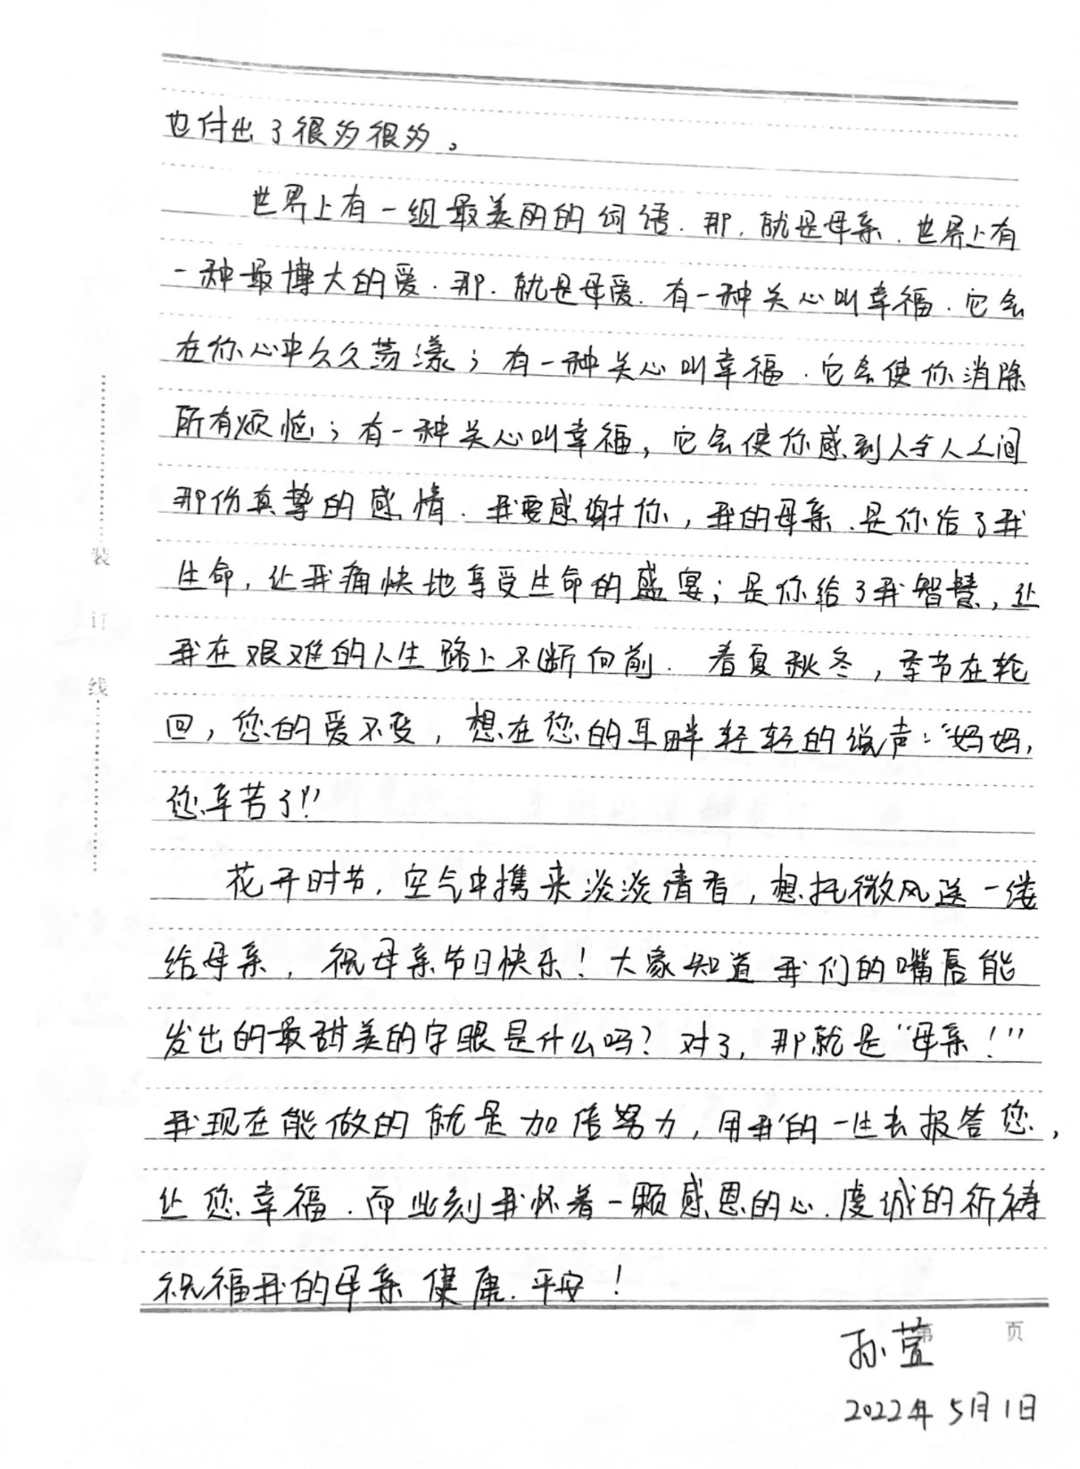 也付出了很多很多。
世界上有一组最美丽的词语.那.就是母亲.世界上有
一种最博大的爱.那.就是母爱.有一种关心叫幸福.它会
在你心中久久荡漾；有一种关心叫幸福.它会使你消除
所有烦恼；有一种关心叫幸福，它会使你感到人与人之间
那份真挚的感情.我要感谢你，我的母亲.是你给了我
生命，让我痛快地享受生命的盛宴；是你给了我智慧，让
我在艰难的人生路上不断向前.春夏秋冬，季节在轮
回，您的爱不变，想在您的耳畔轻轻的说声：“妈妈，
您辛苦了！”
花开时节，空气中携来淡淡清香，想托微风送一缕
给母亲，祝母亲节日快乐！大家知道我们的嘴唇能
发出的最甜美的字眼是什么吗？对了，那就是“母亲！”
我现在能做的就是加倍努力，用我的一生去报答您，
让您幸福.而此刻我怀着一颗感恩的心.虔诚的祈祷
祝福我的母亲健康.平安！
第 页
孙萱
2022年5月1日
装
订
线